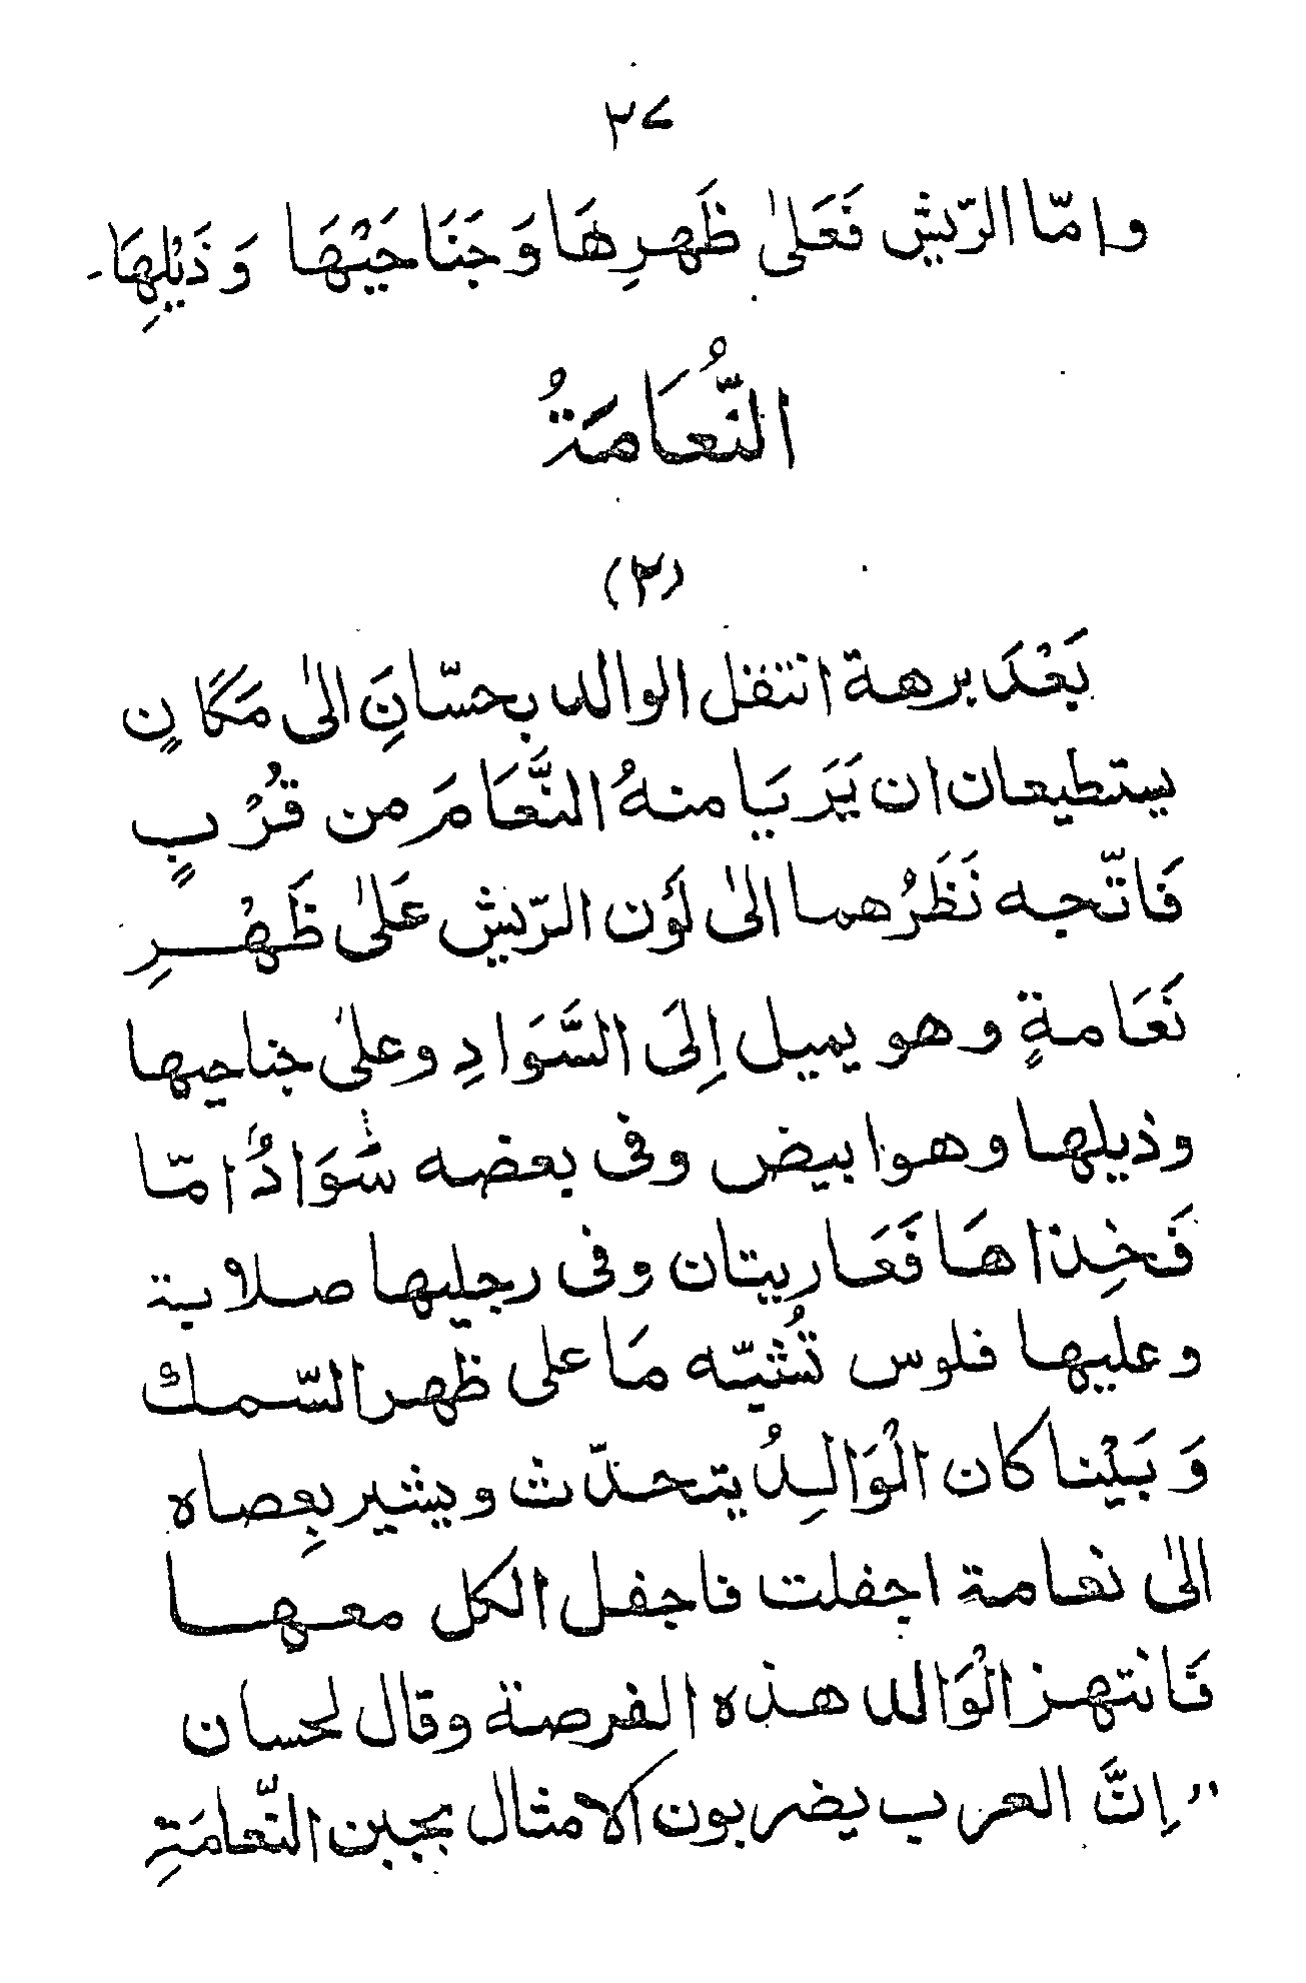 ٢٧
وامّا الرّيش فَعَلىٰ ظَهرِهَا وَجَنَاحَيْهَا وَذَيْلِهَا۔
النَّعَامَةُ
(٢)
بَعْدَ برهة انتقل الوالد بحسّانَِ الىٰ مَكَانٍ
يستطيعان ان يَرَيَا منهُ النَّعَامَ من قُرْبٍ
فَاتّجه نَظَرُهما الىٰ لَوْن الرّيش عَلىٰ ظَهْرِ
نَعَامةٍ وهو يميل إِلَى السَّوَادِ وعلىٰ جناحيها
وذيلها وهو ابيض وفى بعضه سَوَادُ امّا
فَخِذاهَا فَعَاريتان وفى رجليها صلابة
وعليها فلوس تُشبّه مَا على ظهر السّمك
وَبَيْنا كان الْوَالِدُ يتحدّث ويشير بِعصاه
الىٰ نعامة اجفلت فاجفل الكل معها
فَانتهز الْوَالد هذه الفرصة وقال لحسان
"اِنَّ العرب يضربون الامثال بجبن النّعامَةِ